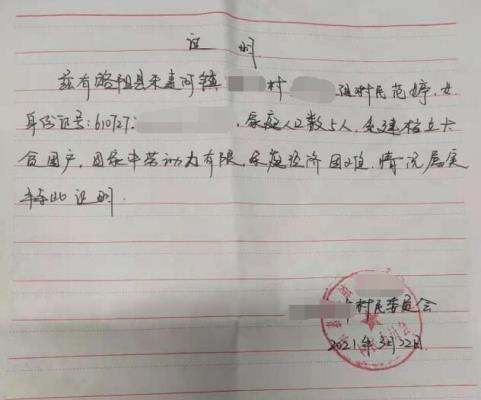 证明
兹有略阳县禾嘉河镇 村 组村民范婷,女
身份证号:610727 ,家庭人口数5人,系建档立卡
贫困户,因家中劳动力有限,家庭经济困难,情况属实
特此证明
村民委员会
2021年3月22日